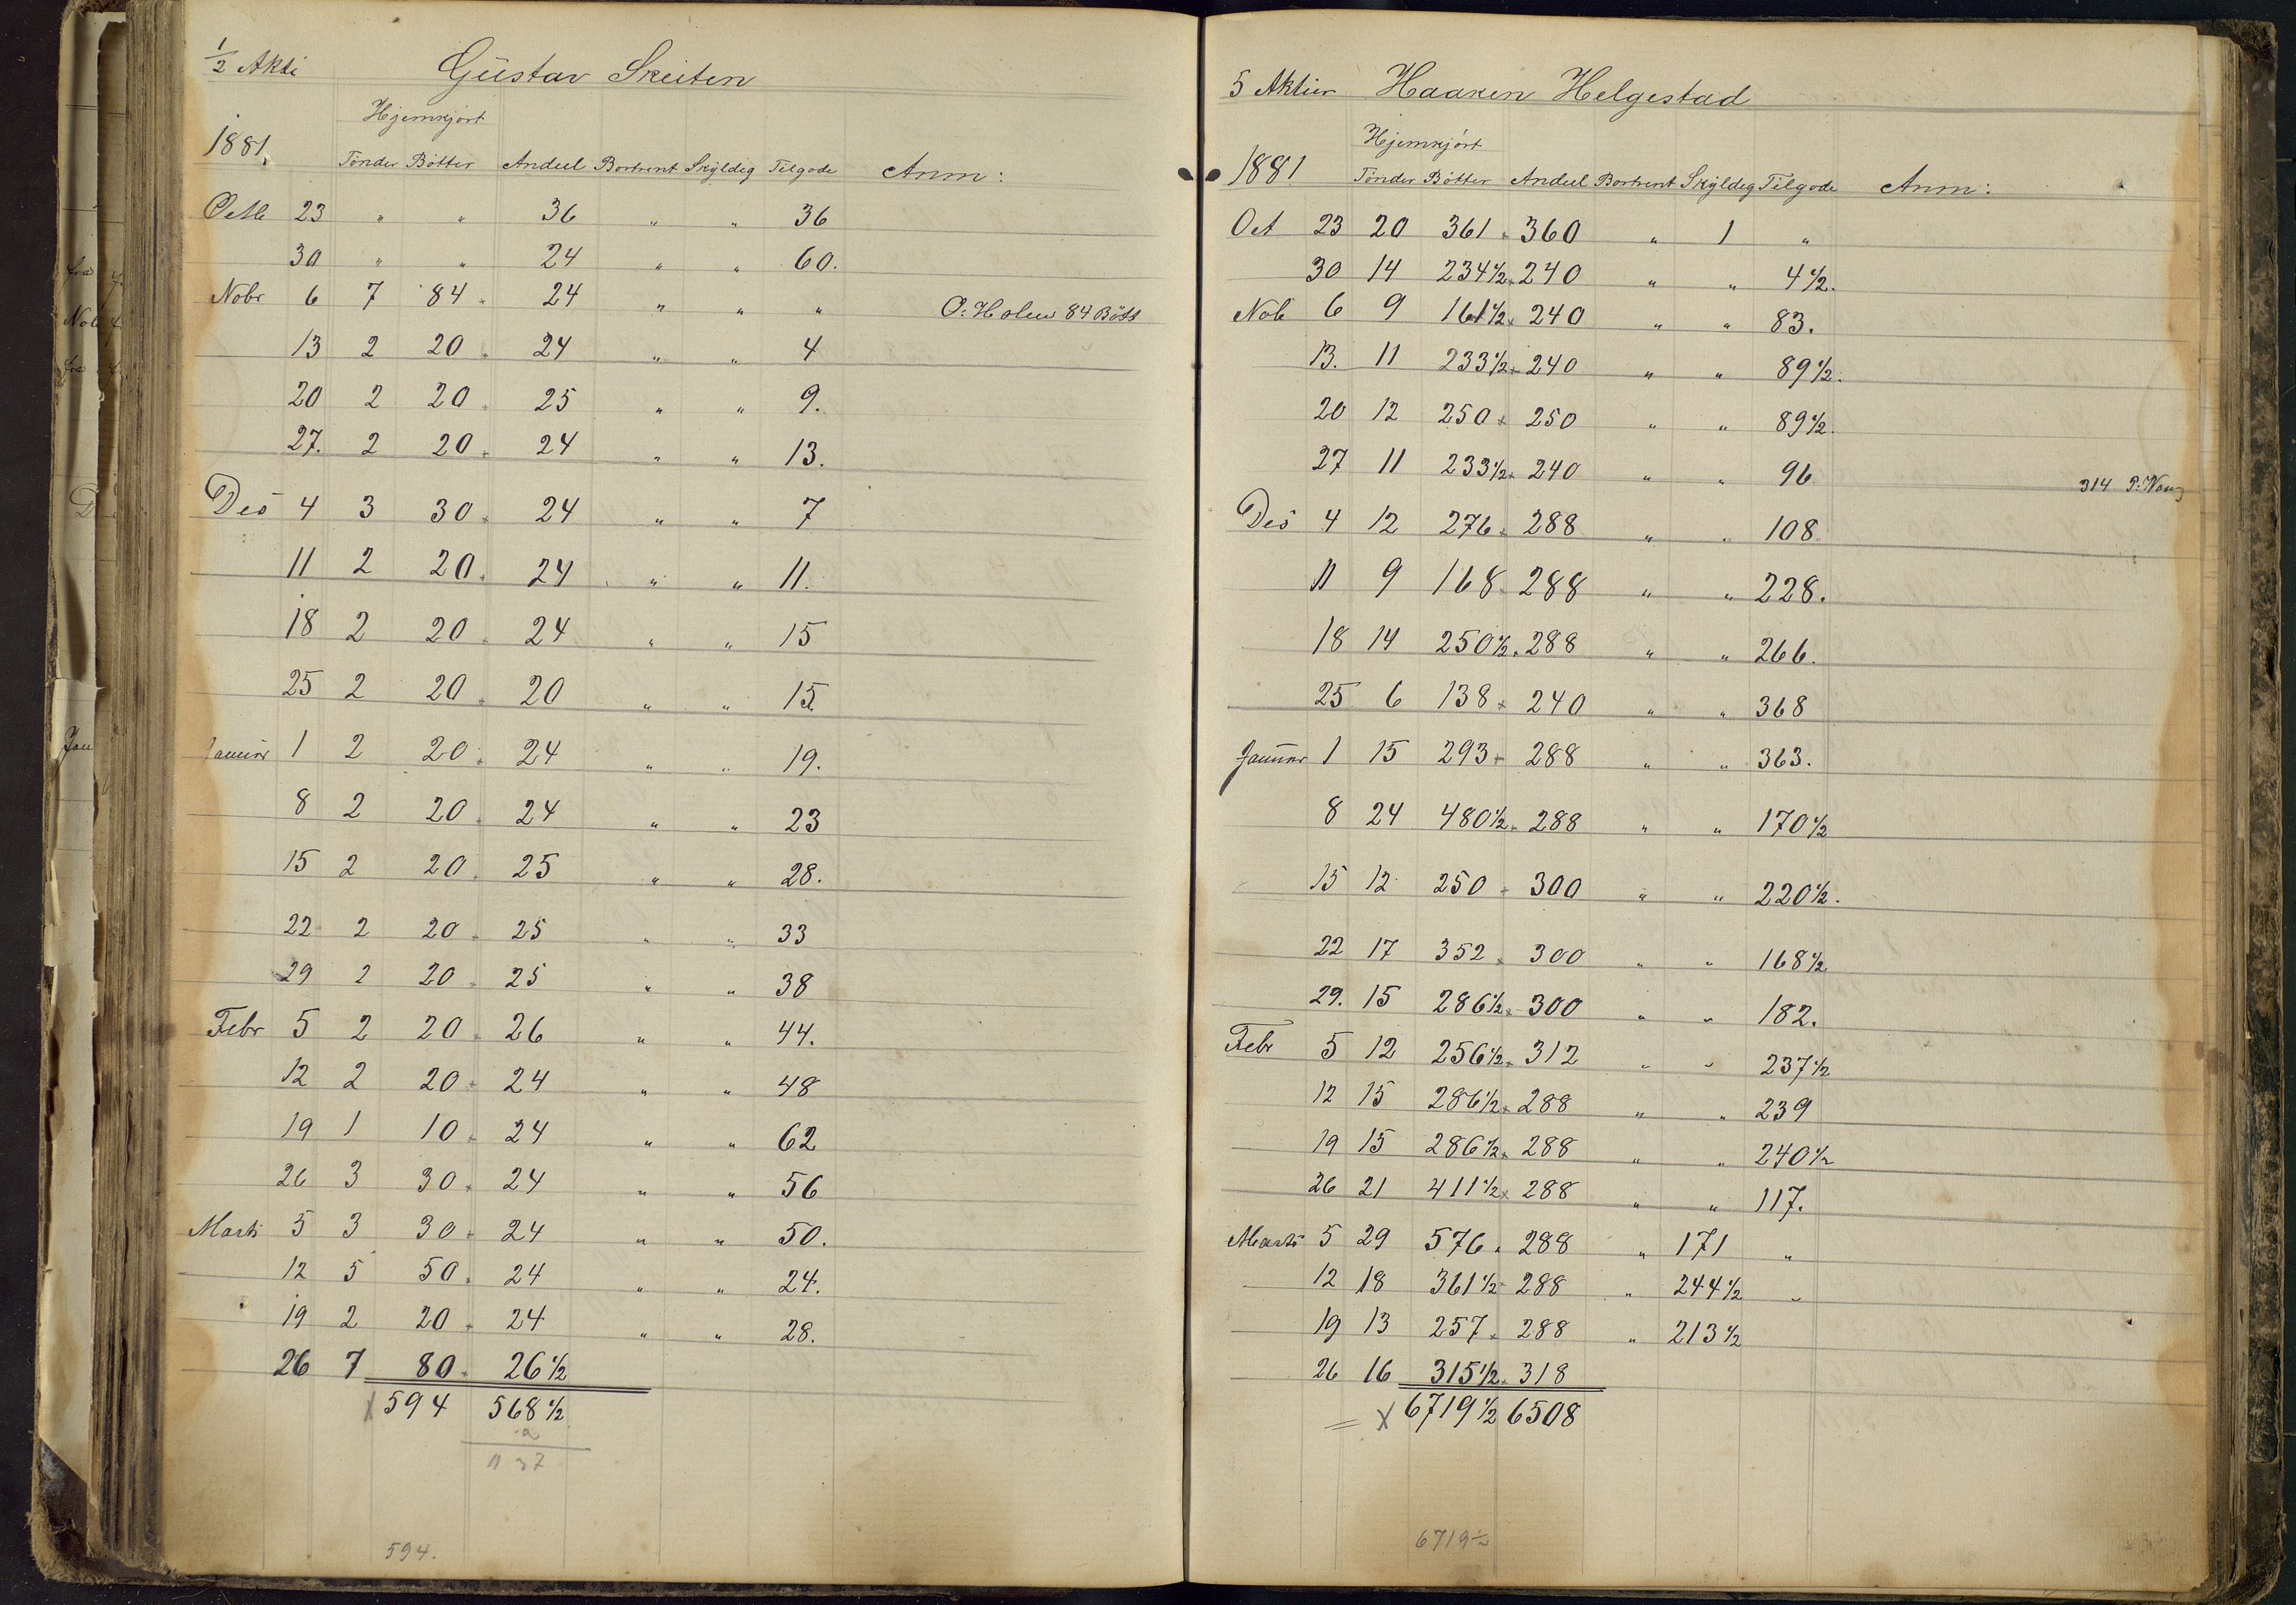 1/2 Akti Güstav Skeiten
Hjemkjört
1881. Tönder Bötter Andeel Bortrent Skÿldig Tilgode Anm:
Octb 23 " " 36 " " 36
30 " " 24 " " 60.
Nobr 6 7 84 24 " " " O. Holen 84 Bött
13 2 20 24 " " 4
20 2 20 25 " " 9.
27. 2 20 24 " " 13.
Des 4 3 30 24 " " 7
11 2 20 24 " " 11.
18 2 20 24 " " 15
25 2 20 20 " " 15.
Januar 1 2 20 24 " " 19.
8 2 20 24 " " 23
15 2 20 25 " " 28.
22 2 20 25 " " 33
29 2 20 25 " " 38
Febr 5 2 20 26 " " 44.
12 2 20 24 " " 48
19 1 10 24 " " 62
26 3 30 24 " " 56
Marts 5 3 30 24 " " 50.
12 5 50 24 " " 24.
19 2 20 24 " " 28.
26 7 80 26 1/2
x 594 568 1/2
2
1137
594.
5 Aktier Haaken Helgestad
Hjemkjört
1881 Tönder Bötter Andeel Bortrent Skÿldeg Tilgode Anm:
Oct 23 20 361 360 " 1 "
30 14 234 1/2 240 " " 4 1/2.
Nob 6 9 161 1/2 240 " " 83.
13. 11 233 1/2 240 " " 89 1/2.
20 12 250 250 " " 89 1/2.
27 11 233 1/2 240 " " 96 314
Des 4 12 276 288 " " 108
11 9 168 288 " " 228.
18 14 250 1/2 288 " " 266.
25 6 138 240 " " 368
Januar 1 15 293 288 " " 363.
8 24 480 1/2 288 " " 170 1/2
15 12 250 300 " " 220 1/2.
22 17 352 300 " " 168 1/2
29. 15 286 1/2 300 " " 182.
Febr 5 12 256 1/2 312 " " 237 1/2
12 15 286 1/2 288 " " 239
19 15 286 1/2 288 " " 240 1/2
26 21 411 1/2 288 " " 117.
Marts 5 29 576 288 " 171 "
12 18 361 1/2 288 " 244 1/2 "
19 13 257 288 " 213 1/2
26 16 315 1/2 318
= x 6719 1/2 6508
6719 1/2